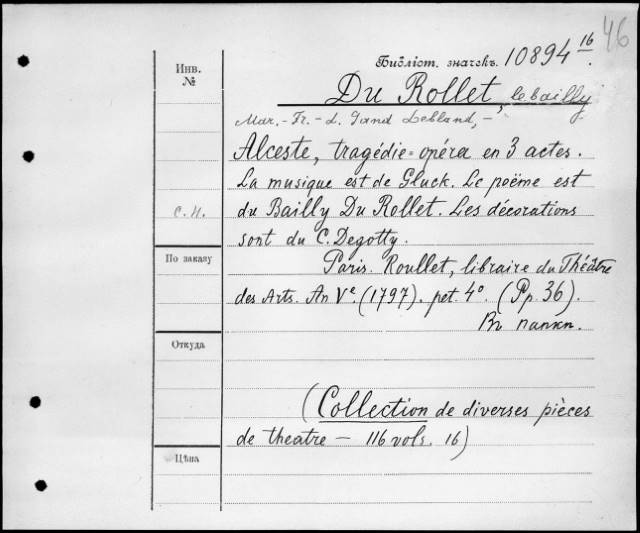 46
Библіот. значекъ. 10894 16.
Инв.
№
Du Rollet, le bailly
Mar.-Fr.-L. Gand Lebland, -
Alceste, tragédie=opéra en 3 actes.
La musique est de Gluck. Le poëme est
С.Н.
du Bailly Du Rollet. Les décorations
sont du C. Degotty.
По заказу
Paris. Roullet, libraire du Théâtre
des Arts. An Ve (1797). pet. 4°. (Pp. 36).
Въ папкѣ.
Откуда
(Collection de diverses pièces
de theatre — 116 vols. 16)
Цѣна